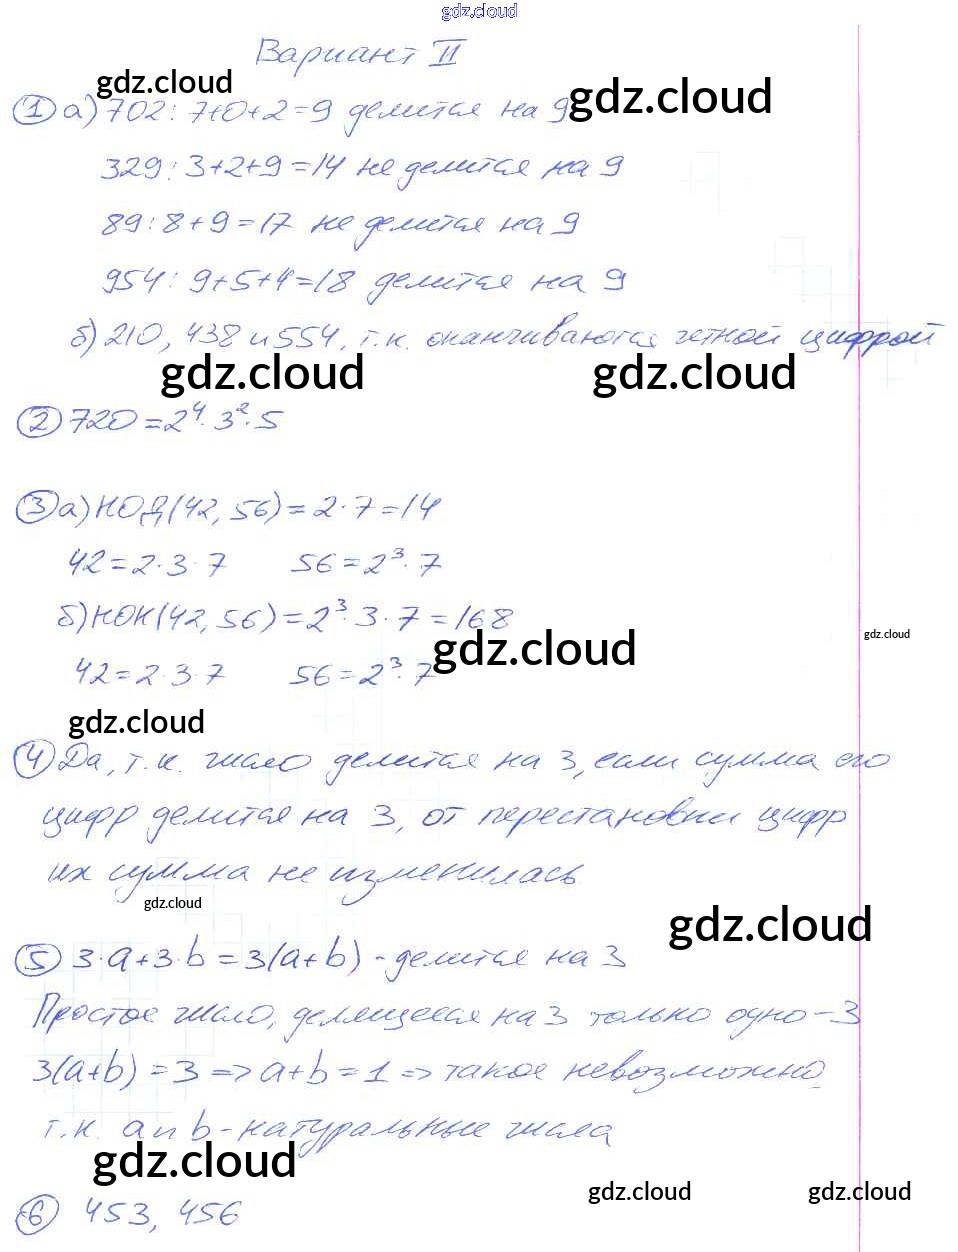 gdz.cloud
Вариант II
gdz.cloud
gdz.cloud
① а) 702: 7+0+2=9 делится на 9
329: 3+2+9=14 не делится на 9
89: 8+9=17 не делится на 9
954: 9+5+4=18 делится на 9
б) 210, 438 и 554, т.к. оканчиваются четной цифрой
gdz.cloud gdz.cloud
② 720=2⁴·3²·5
③ а) НОД(42, 56)=2·7=14
42=2·3·7 56=2³·7
б) НОК(42, 56)=2³·3·7=168
gdz.cloud
gdz.cloud
42=2·3·7 56=2³·7
gdz.cloud
④ Да, т.к. число делится на 3, если сумма его
цифр делится на 3, от перестановки цифр
их сумма не изменилась
gdz.cloud
gdz.cloud
⑤ 3·a+3·b=3(a+b) - делится на 3
Простое число, делящееся на 3 только одно - 3
3(a+b)=3 => a+b=1 => такое невозможно,
т.к. a и b - натуральные числа
gdz.cloud
gdz.cloud gdz.cloud
⑥ 453, 456